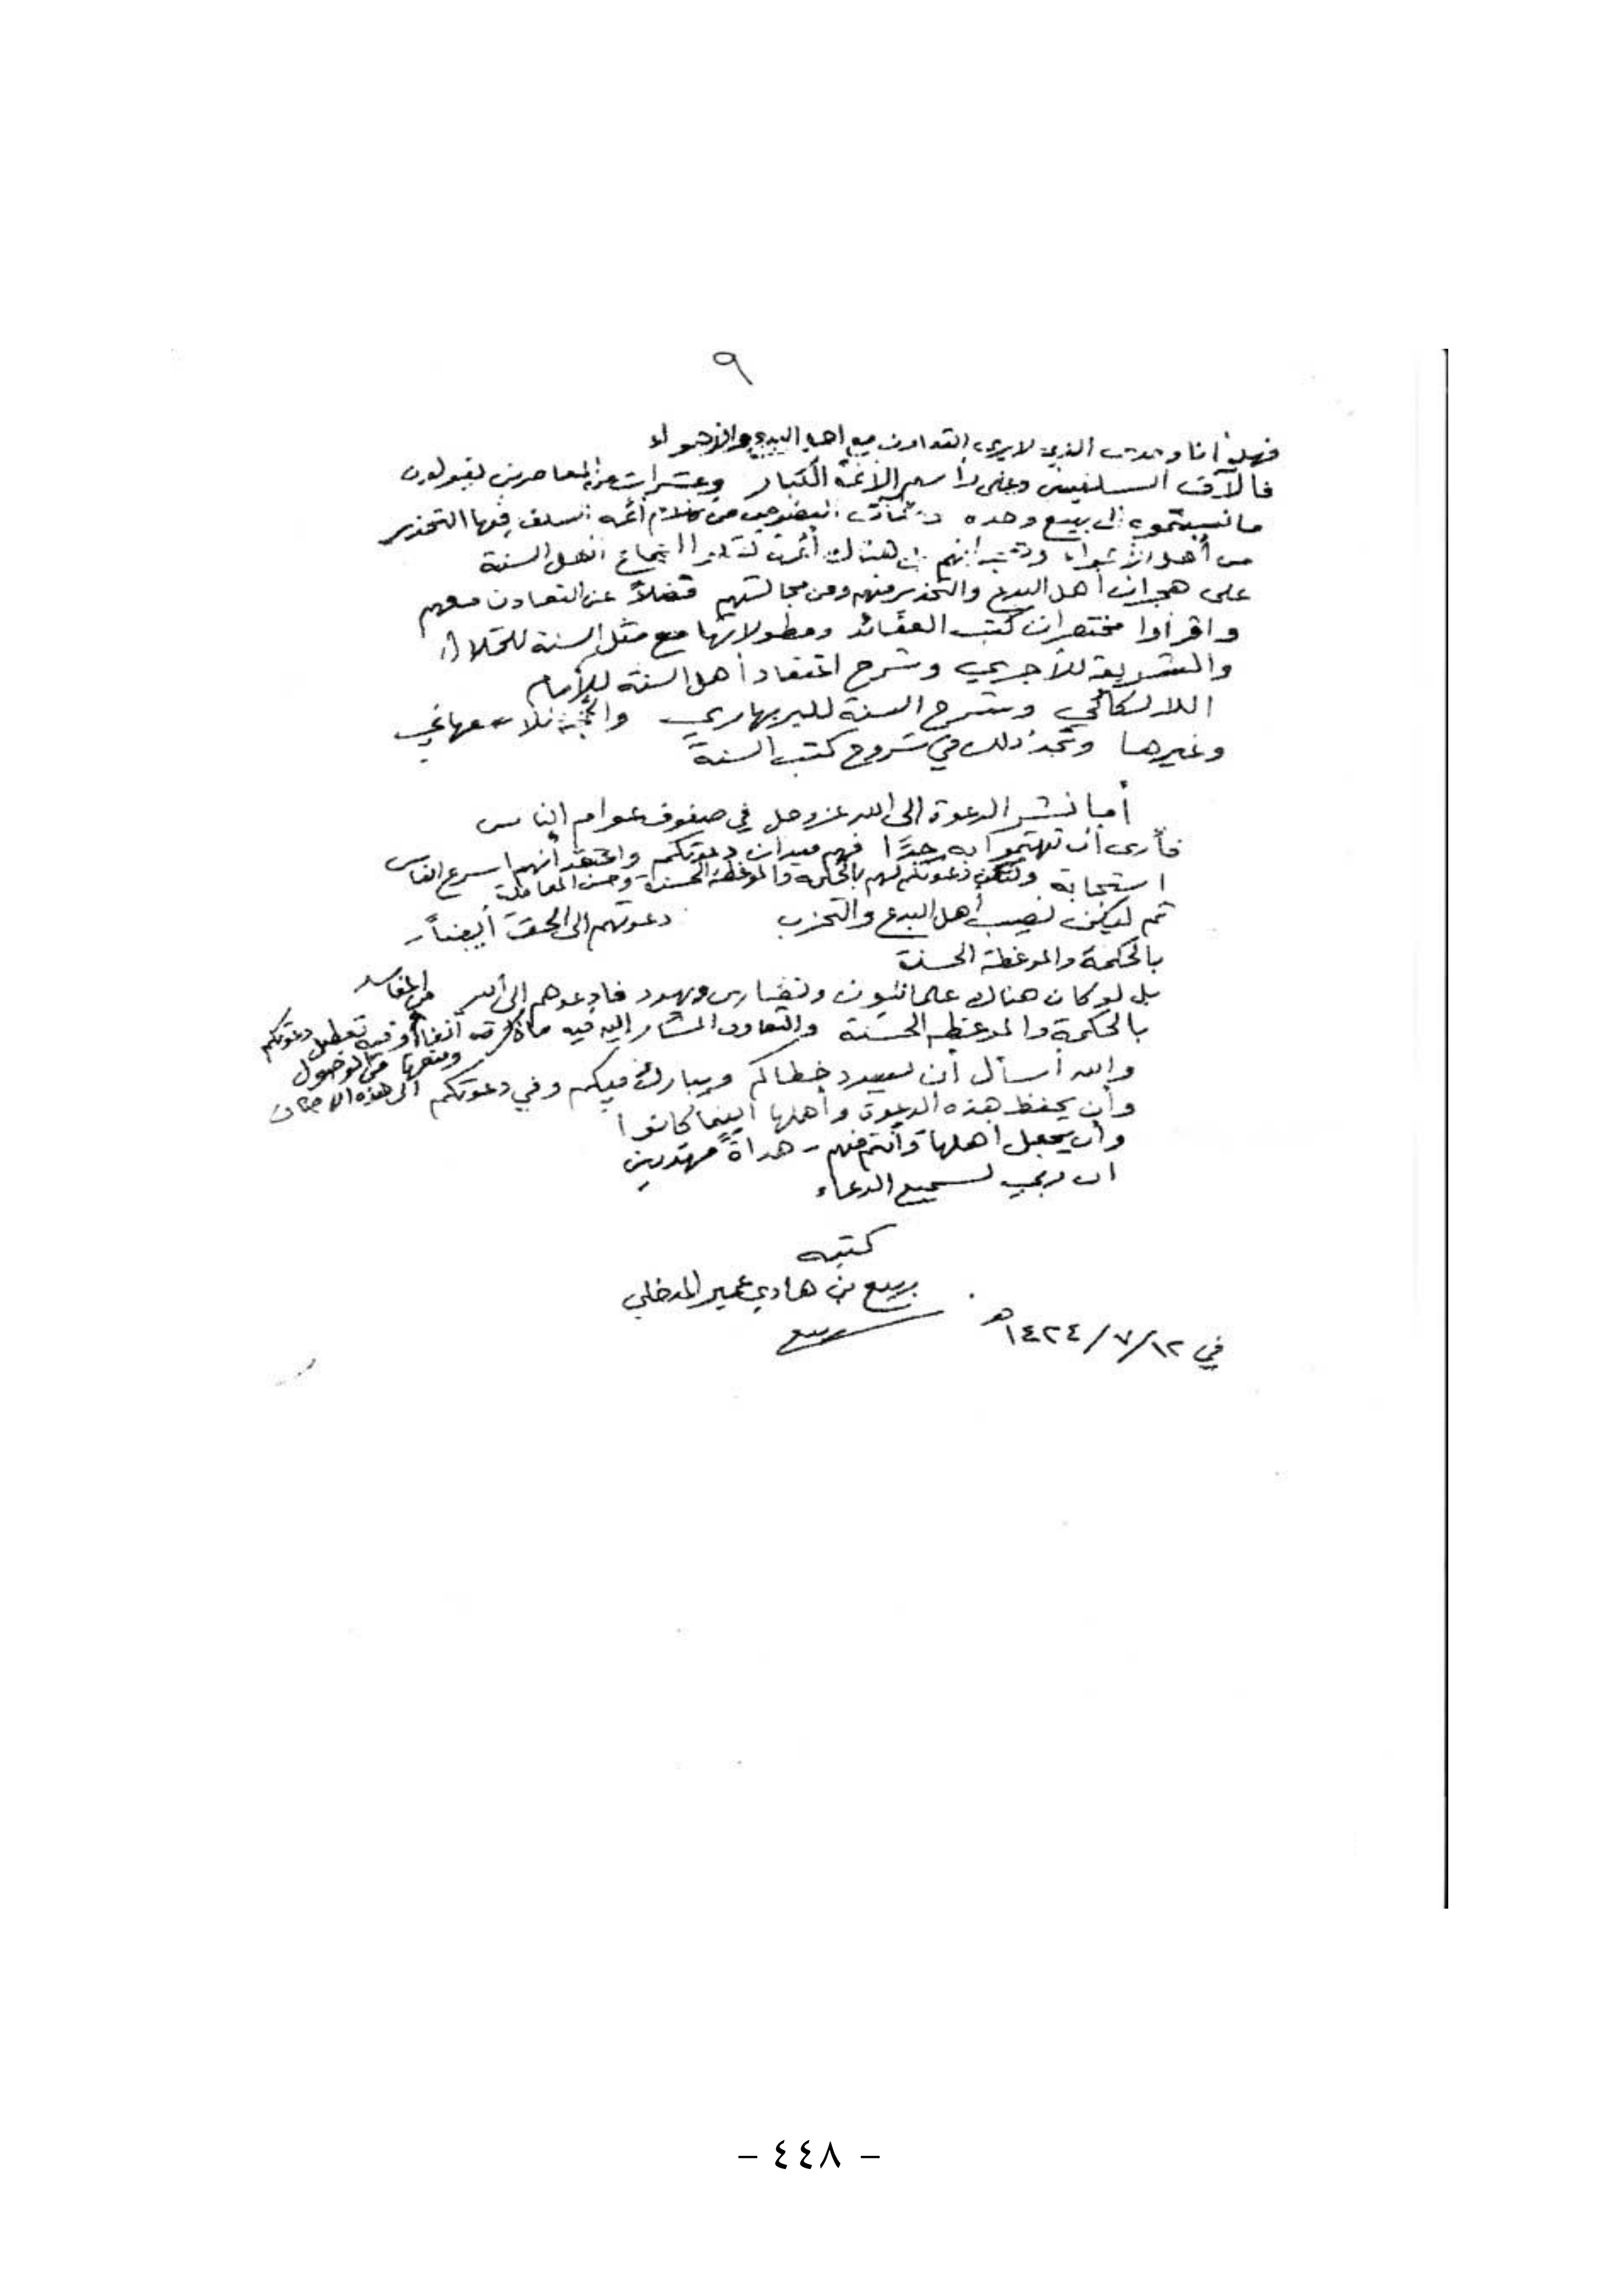 ٩
فهل أنا وحدي الذي لا يرى التعاون مع أهل البدع والأهواء
فآلاف السلفيين وعلى رأسهم الأئمة الكبار وعشرات من المعاصرين يقولون
ما نسبتموه إلى ربيع وحده ومئات النصوص من كلام أئمة السلف فيها التحذير
من أهل الأهواء هناك أئمة إجماع أهل السنة
على هجران أهل البدع والتحذير منهم ومن مجالستهم فضلاً عن التعاون معهم
واقرأوا مختصرات كتب العقائد ومطولاتها مع مثل السنة للخلال
والشريعة للآجري وشرح اعتقاد أهل السنة للإمام
اللالكائي وشرح السنة للبربهاري والحجة للأصفهاني
وغيرها وتجد ذلك في شروح كتب السنة
أما نشر الدعوة إلى الله عز وجل في صفوف عوام الناس
فأرى أن تهتموا به جدًا فهم ميدان دعوتكم واعتقد أنهم أسرع الناس
استجابة ولتكن دعوتكم لهم بالحكمة والموعظة الحسنة وحسن المعاملة
ثم ليكن نصيب أهل البدع والتحزب دعوتهم إلى الحق أيضاً -
بالحكمة والموعظة الحسنة
بل لو كان هناك علمانيون ونصارى ويهود فادعوهم إلى الله
بالحكمة والموعظة الحسنة والتعاون المشار إليه فيه ما ذكرته آنفا من المفاسد وفيه تعطيل دعوتكم
ومنعها من الوصول
إلى هذه الأصناف
والله أسأل أن يسدد خطاكم ويبارك فيكم وفي دعوتكم
وأن يحفظ هذه الدعوة وأهلها أينما كانوا
وأن يجعل أهلها وأنتم منهم - هداةً مهتدين
إن ربي لسميع الدعاء
كتبه
ربيع بن هادي عمير المدخلي
ربيع
في ١٢/٧/١٤٢٤هـ
- ٤٤٨ -